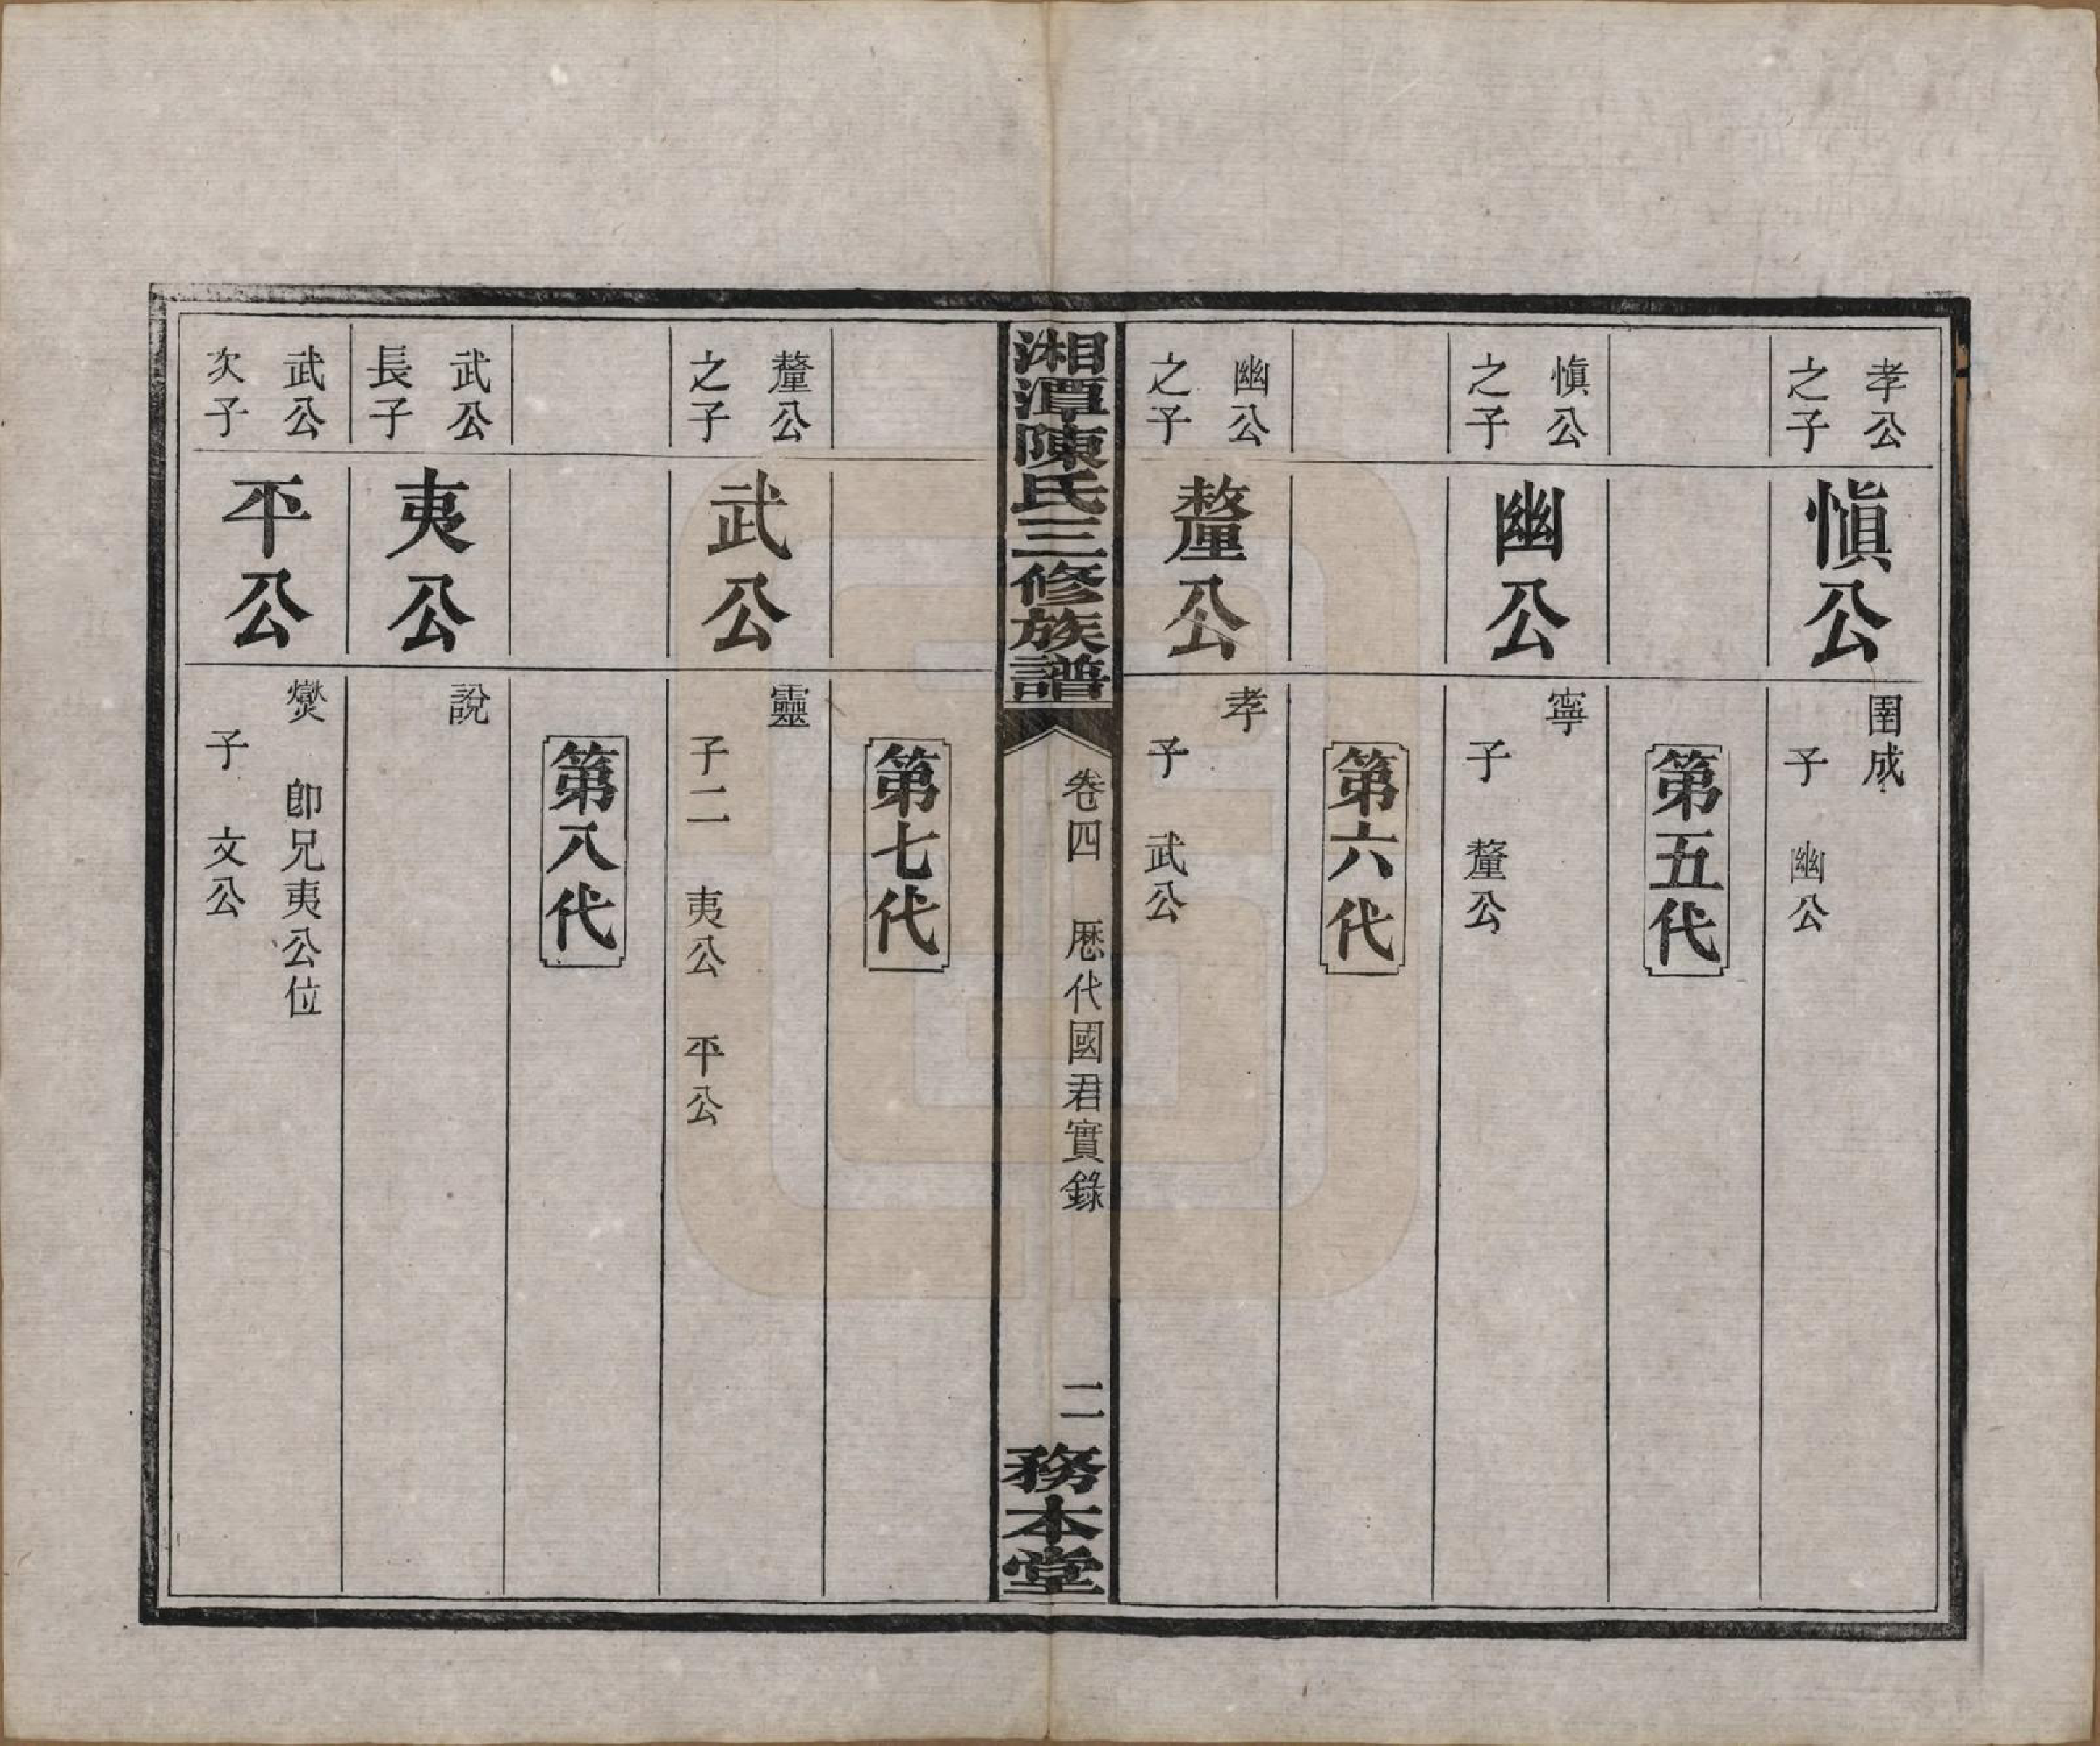 孝公
之子
愼公
圉成
子　幽公
第五代
愼公
之子
幽公
寧
子　釐公
第六代
幽公
之子
釐公
孝
子　武公
湘潭陳氏三修族譜
卷四　歷代國君實錄
二
務本堂
第七代
釐公
之子
武公
靈
子二　夷公　平公
第八代
武公
長子
夷公
說
武公
次子
平公
燮　卽兄夷公位
子　文公